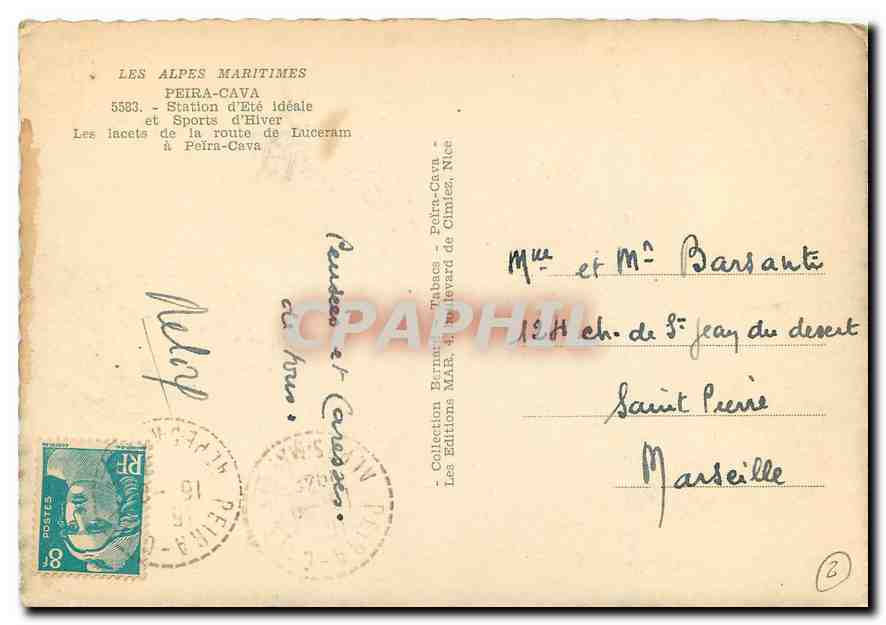 LES ALPES MARITIMES
PEIRA-CAVA
5583. - Station d'Eté idéale
et Sports d'Hiver
Les lacets de la route de Luceram
à Peïra-Cava
- Collection Bernard - Tabacs - Peïra-Cava -
Les Editions MAR, 4, boulevard de Cimiez, Nice
Pensées et Caresses
de tous.
Mme et Mr Barsanti
128 ch. de St Jean du desert
Saint Pierre
Marseille
CPAPHIL
RF
POSTES
8f
PEIRA-C
ALPES M
16
PEIRA-C
2